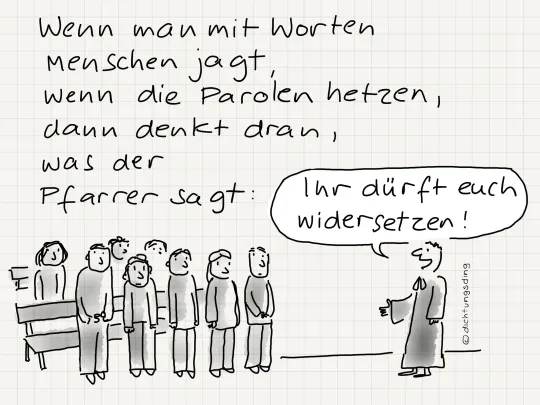 Wenn man mit Worten
Menschen jagt,
wenn die Parolen hetzen,
dann denkt dran,
was der
Pfarrer sagt:
Ihr dürft euch
widersetzen!
©dichtungsding